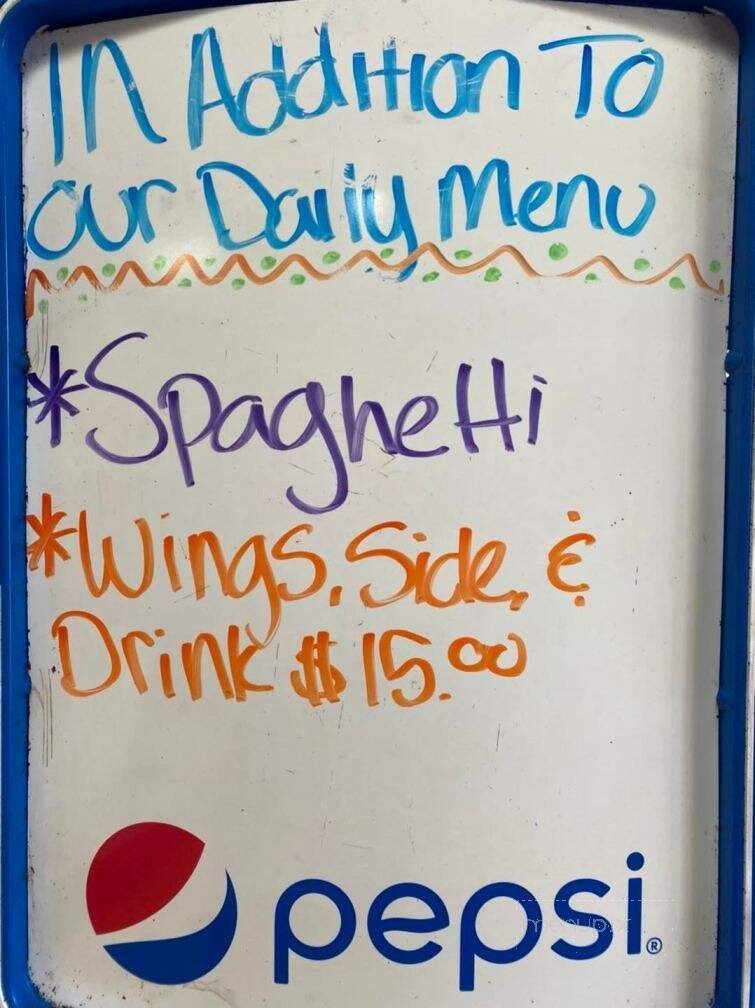 In Addition To
our Daily Menu
*Spaghetti
*Wings, Side, &
Drink $15.00
pepsi®